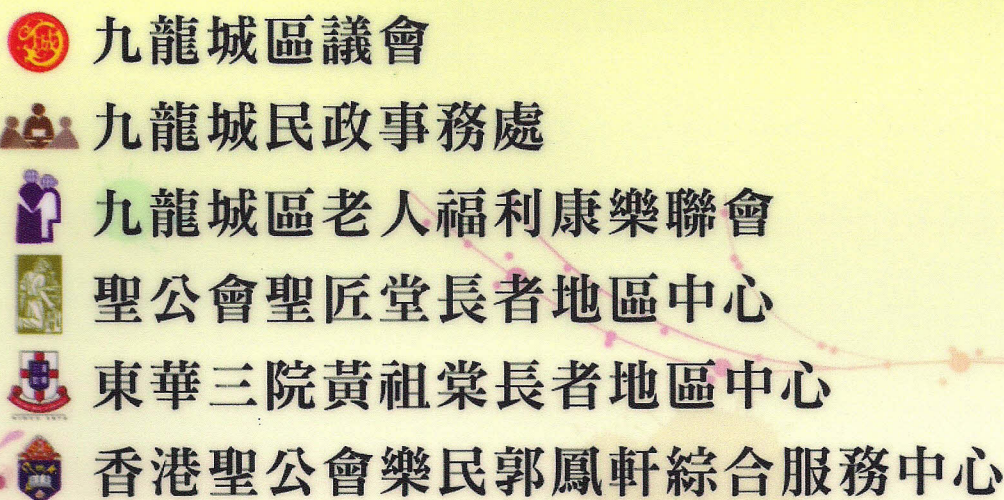 九龍城區議會
九龍城民政事務處
九龍城區老人福利康樂聯會
聖公會聖匠堂長者地區中心
東華三院黃祖棠長者地區中心
香港聖公會樂民郭鳳軒綜合服務中心